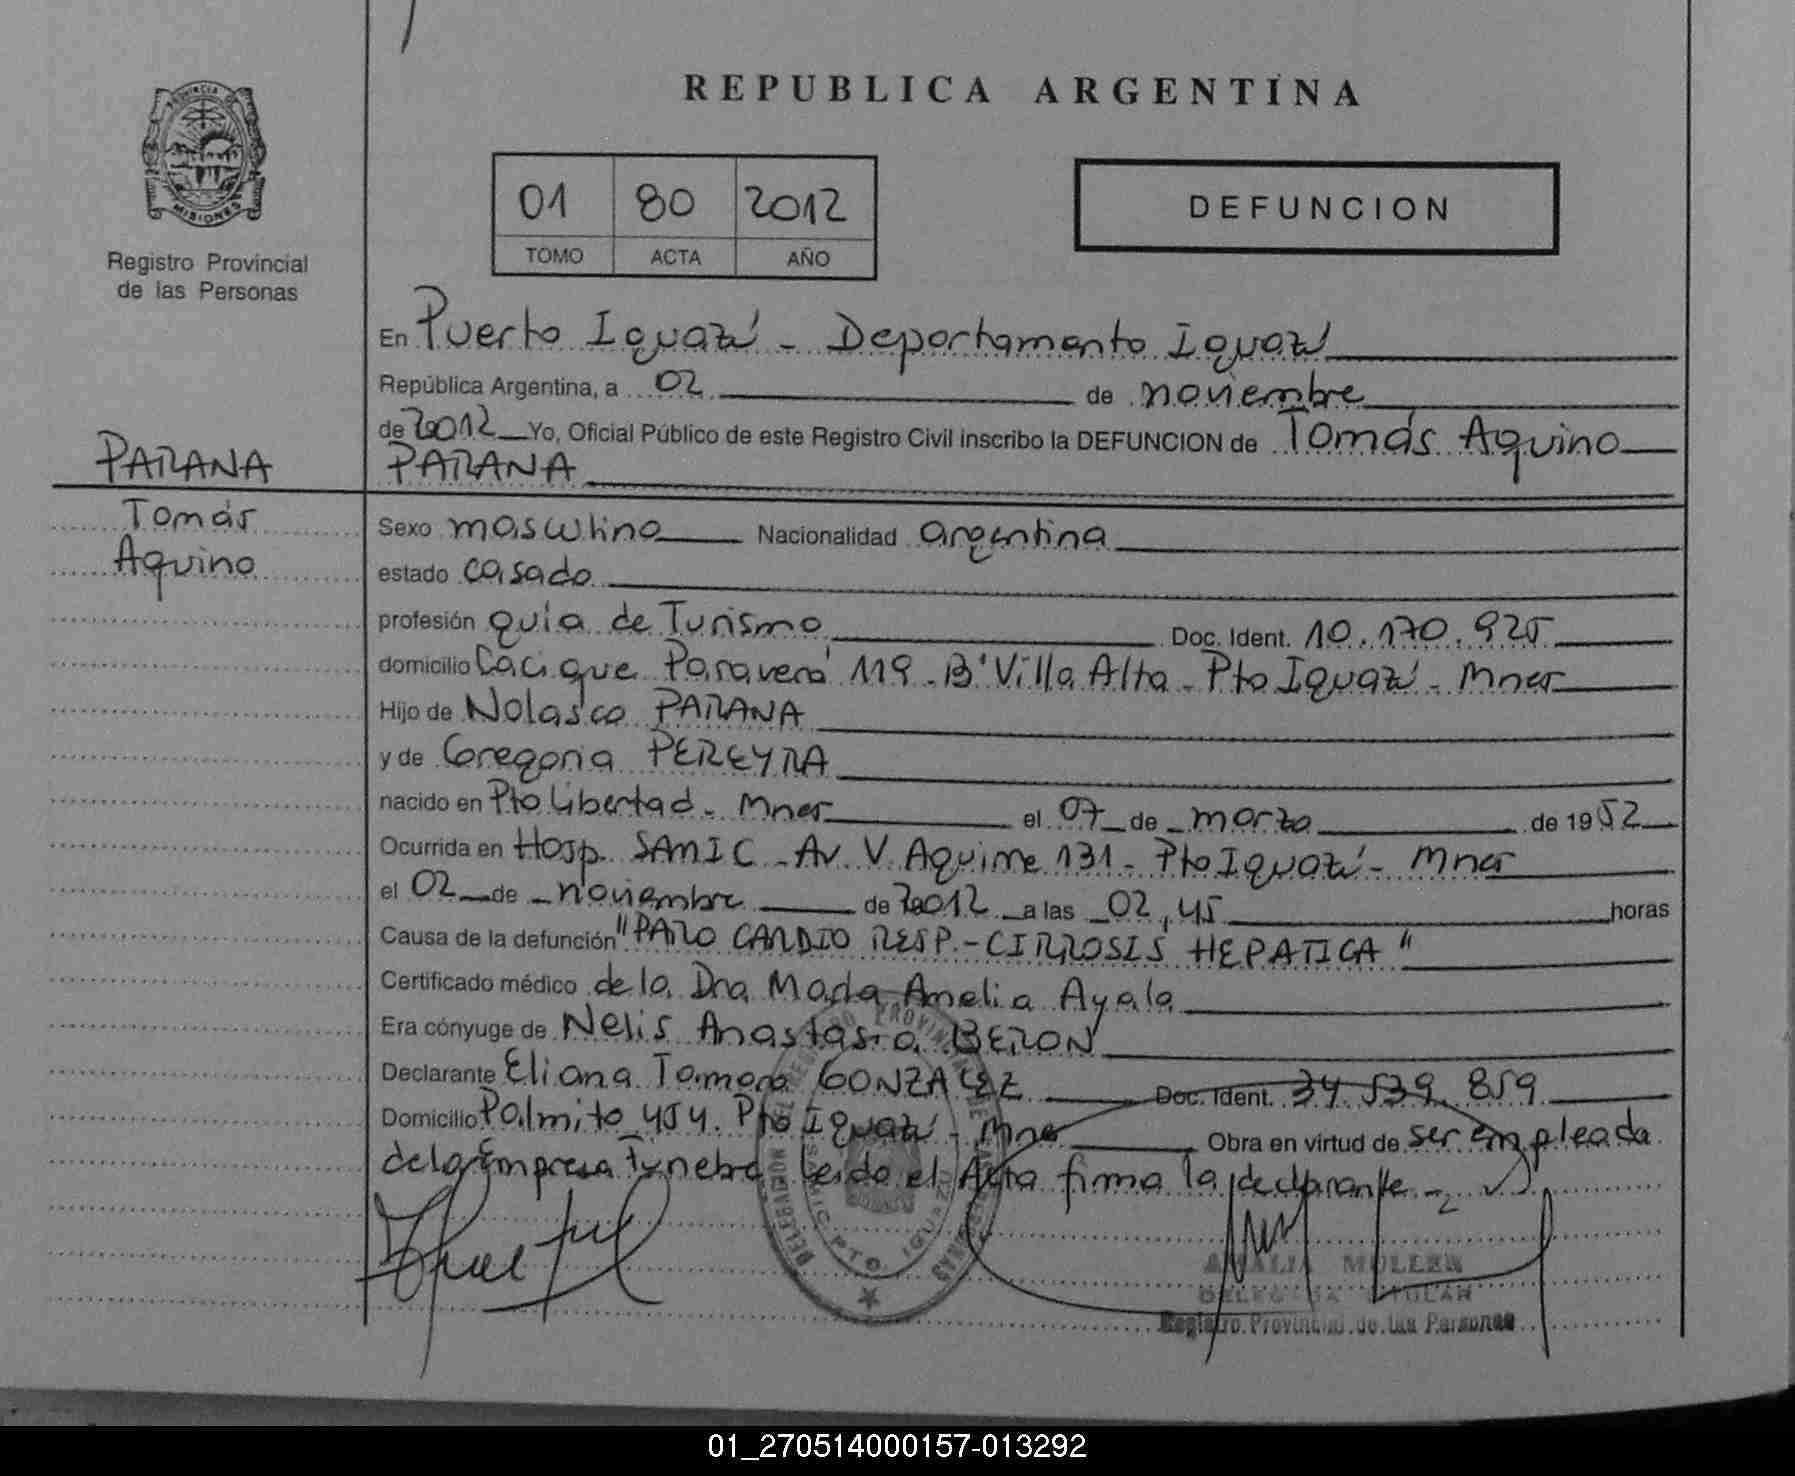 REPUBLICA ARGENTINA
PROVINCIA DE
MISIONES
Registro Provincial
de las Personas
01 80 2012
TOMO ACTA AÑO
DEFUNCION
En Puerto Iguazú - Departamento Iguazú
República Argentina, a 02 de noviembre
de 2012 Yo, Oficial Público de este Registro Civil inscribo la DEFUNCION de Tomás Aquino
PARANA
PARANA
Tomás
Aquino
Sexo masculino Nacionalidad argentina
estado casado
profesión guía de Turismo Doc. Ident. 10.170.925
domicilio Cacique Paraverá 119 - B° Villa Alta - Pto Iguazú - Mnes
Hijo de Nolasco PARANA
y de Gregoria PEREYRA
nacido en Pto Libertad - Mnes el 07 de marzo de 1952
Ocurrida en Hosp. SAMIC - Av. V. Aquirre 131 - Pto Iguazú - Mnes
el 02 de noviembre de 2012 a las 02,45 horas
Causa de la defunción "PARO CARDIO RESP. - CIRROSIS HEPATICA"
Certificado médico de la Dra María Amelia Ayala
Era cónyuge de Nelis Anastasia BERON
Declarante Eliana Tamara GONZALEZ Doc. Ident. 34.539.859
Domicilio Palmito 454. Pto Iguazú - Mnes Obra en virtud de ser empleada
de la Empresa Fúnebre leido el Acta firma la declarante
PTO. IGUAZU
AMALIA MOLLER
DELEGADA TITULAR
Registro Provincial de las Personas
01_270514000157-013292